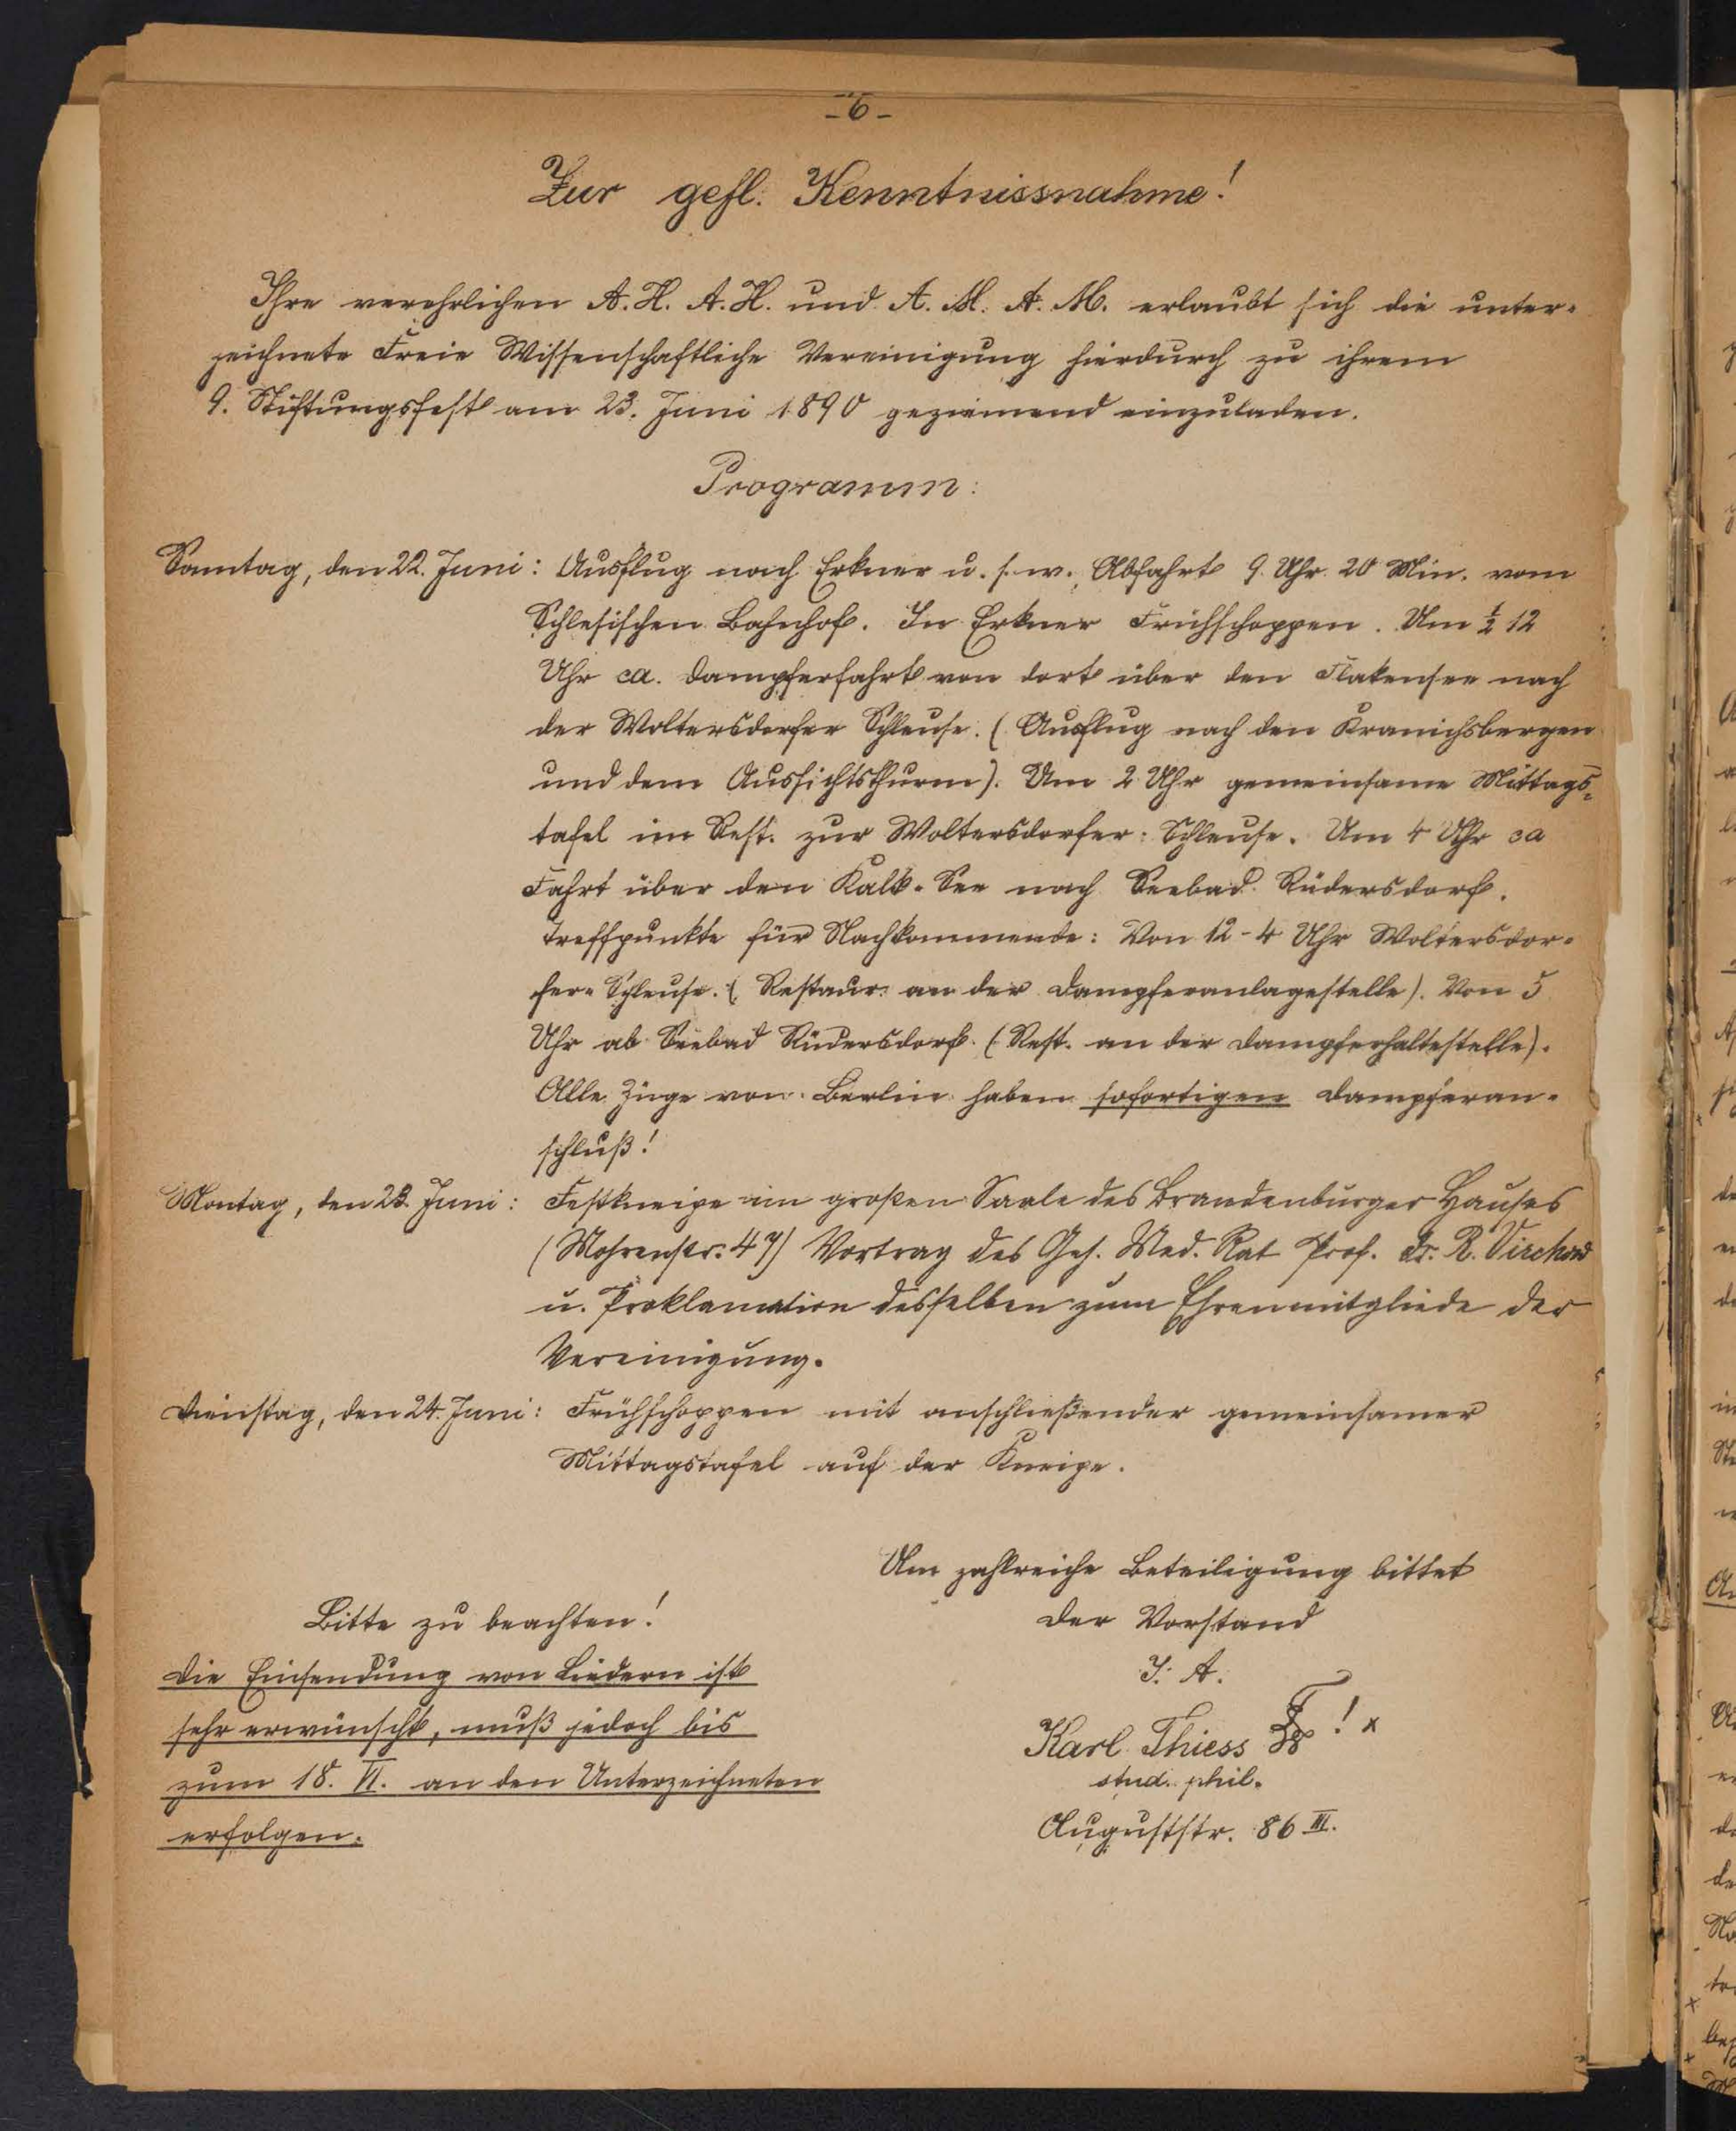 -6-
Zur gefl. Kenntnissnahme!
Ihre verehrlichen A. H. A. H. und A. M. A. M. erlaubt sich die unter-
zeichnete Freie Wissenschaftliche Vereinigung hierdurch zu ihrem
9. Stiftungsfest am 23. Juni 1890 geziemend einzuladen.
Programm:
Sonntag, den 22. Juni: Ausflug nach Erkner u. s. w., Abfahrt 9 Uhr 20 Min. vom
Schlesischen Bahnhof. In Erkner Frühschoppen. Um ½ 12
Uhr ca. Dampferfahrt von dort über den Flakensee nach
der Woltersdorfer Schleuse. (Ausflug nach den Kranichsbergen
und dem Aussichtsthurm). Um 2 Uhr gemeinsame Mittags-
tafel im Rest. zur Woltersdorfer-Schleuse. Um 4 Uhr ca
Fahrt über den Kalk-See nach Seebad Rüdersdorf.
Treffpunkte für Nachkommende: Von 12-4 Uhr Woltersdor-
fer-Schleuse. (Restaur. an der Dampferanlagestelle). Von 5
Uhr ab Seebad Rüdersdorf. (Rest. an der Dampferhaltestelle).
Alle Züge von Berlin haben sofortigen Dampferan-
schluß!
Montag, den 23. Juni: Festkneipe im großen Saale des Brandenburger Hauses
(Mohrenstr. 47) Vortrag des Geh. Med. Rat Prof. Dr. R. Virchow
u. Proklamation desselben zum Ehrenmitgliede der
Vereinigung.
Dienstag, den 24. Juni: Frühschoppen mit anschließender gemeinsamer
Mittagstafel auf der Kneipe.
Um zahlreiche Beteiligung bittet
Der Vorstand
I. A.
Karl Thiess ! x
stud. phil.
Auguststr. 86 III.
Bitte zu beachten!
Die Einsendung von Liedern ist
sehr erwünscht, muß jedoch bis
zum 18. VI. an den Unterzeichneten
erfolgen.